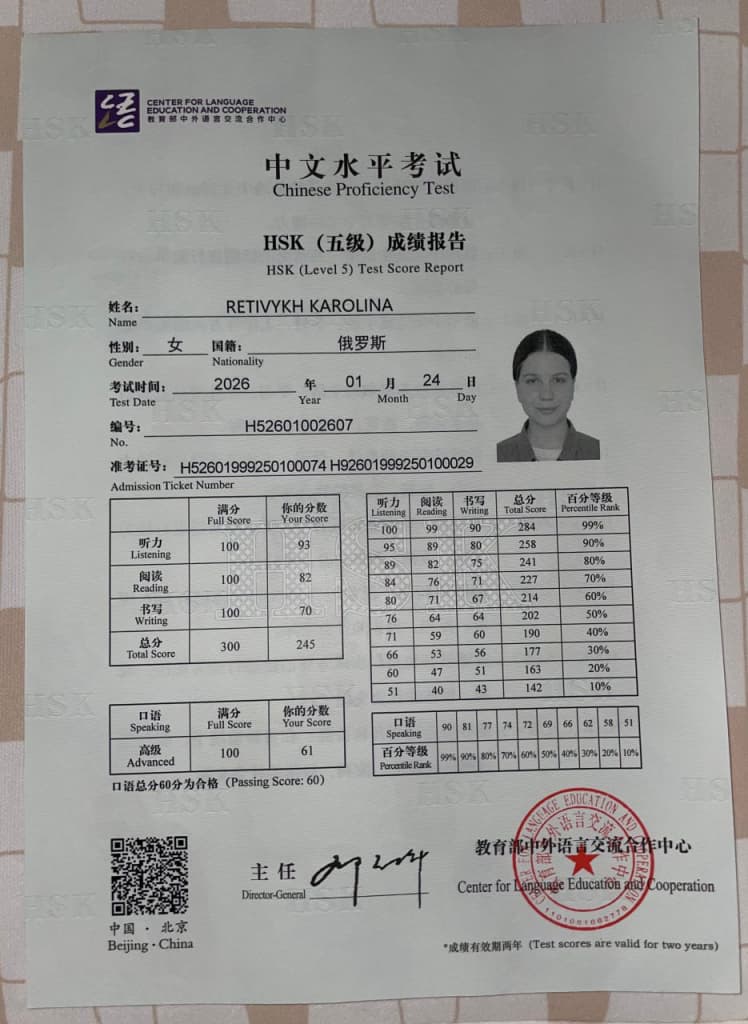 CENTER FOR LANGUAGE
EDUCATION AND COOPERATION
教育部中外语言交流合作中心
中文水平考试
Chinese Proficiency Test
HSK（五级）成绩报告
HSK (Level 5) Test Score Report
姓名: RETIVYKH KAROLINA
Name
性别: 女 国籍: 俄罗斯
Gender Nationality
考试时间: 2026 年 01 月 24 日
Test Date Year Month Day
编号: H52601002607
No.
准考证号: H52601999250100074 H92601999250100029
Admission Ticket Number
满分 你的分数
Full Score Your Score
听力 100 93
Listening
阅读 100 82
Reading
书写 100 70
Writing
总分 300 245
Total Score
听力 阅读 书写 总分 百分等级
Listening Reading Writing Total Score Percentile Rank
100 99 90 284 99%
95 89 80 258 90%
89 82 75 241 80%
84 76 71 227 70%
80 71 67 214 60%
76 64 64 202 50%
71 59 60 190 40%
66 53 56 177 30%
60 47 51 163 20%
51 40 43 142 10%
口语 满分 你的分数
Speaking Full Score Your Score
高级 100 61
Advanced
口语总分60分为合格（Passing Score: 60）
口语 90 81 77 74 72 69 66 62 58 51
Speaking
百分等级 99% 90% 80% 70% 60% 50% 40% 30% 20% 10%
Percentile Rank
中国·北京
Beijing·China
主任
Director-General
教育部中外语言交流合作中心
Center for Language Education and Cooperation
*成绩有效期两年（Test scores are valid for two years）